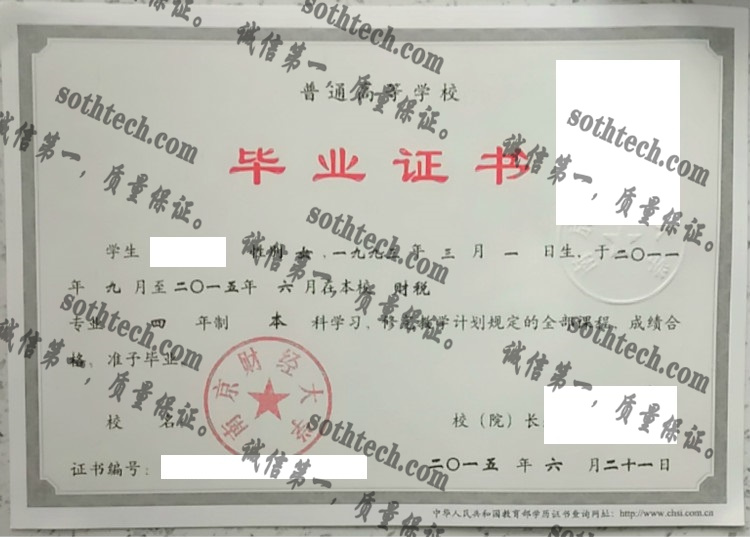 普通高等学校
毕业证书
学生 性别 女，一九九三年 三 月 一 日生，于二〇一一
年 九 月至二〇一五年 六 月在本校 财税
专业 四 年制 本 科学习，修完教学计划规定的全部课程，成绩合
格，准予毕业
校 名 校（院）长
南京财经大学
证书编号： 二〇一五 年 六 月二十一日
中华人民共和国教育部学历证书查询网址：http://www.chsi.com.cn
sothtech.com
诚信第一，质量保证。
sothtech.com
诚信第一，质量保证。
sothtech.com
诚信第一，质量保证。
sothtech.com
诚信第一，质量保证。
sothtech.com
诚信第一，质量保证。
sothtech.com
诚信第一，质量保证。
sothtech.com
诚信第一，质量